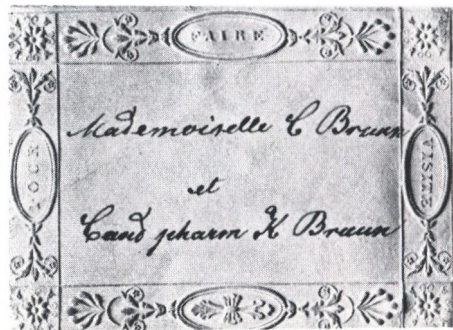 POUR
FAIRE
VISITE
Mademoiselle C Braun
et
Cand pharm K Braun